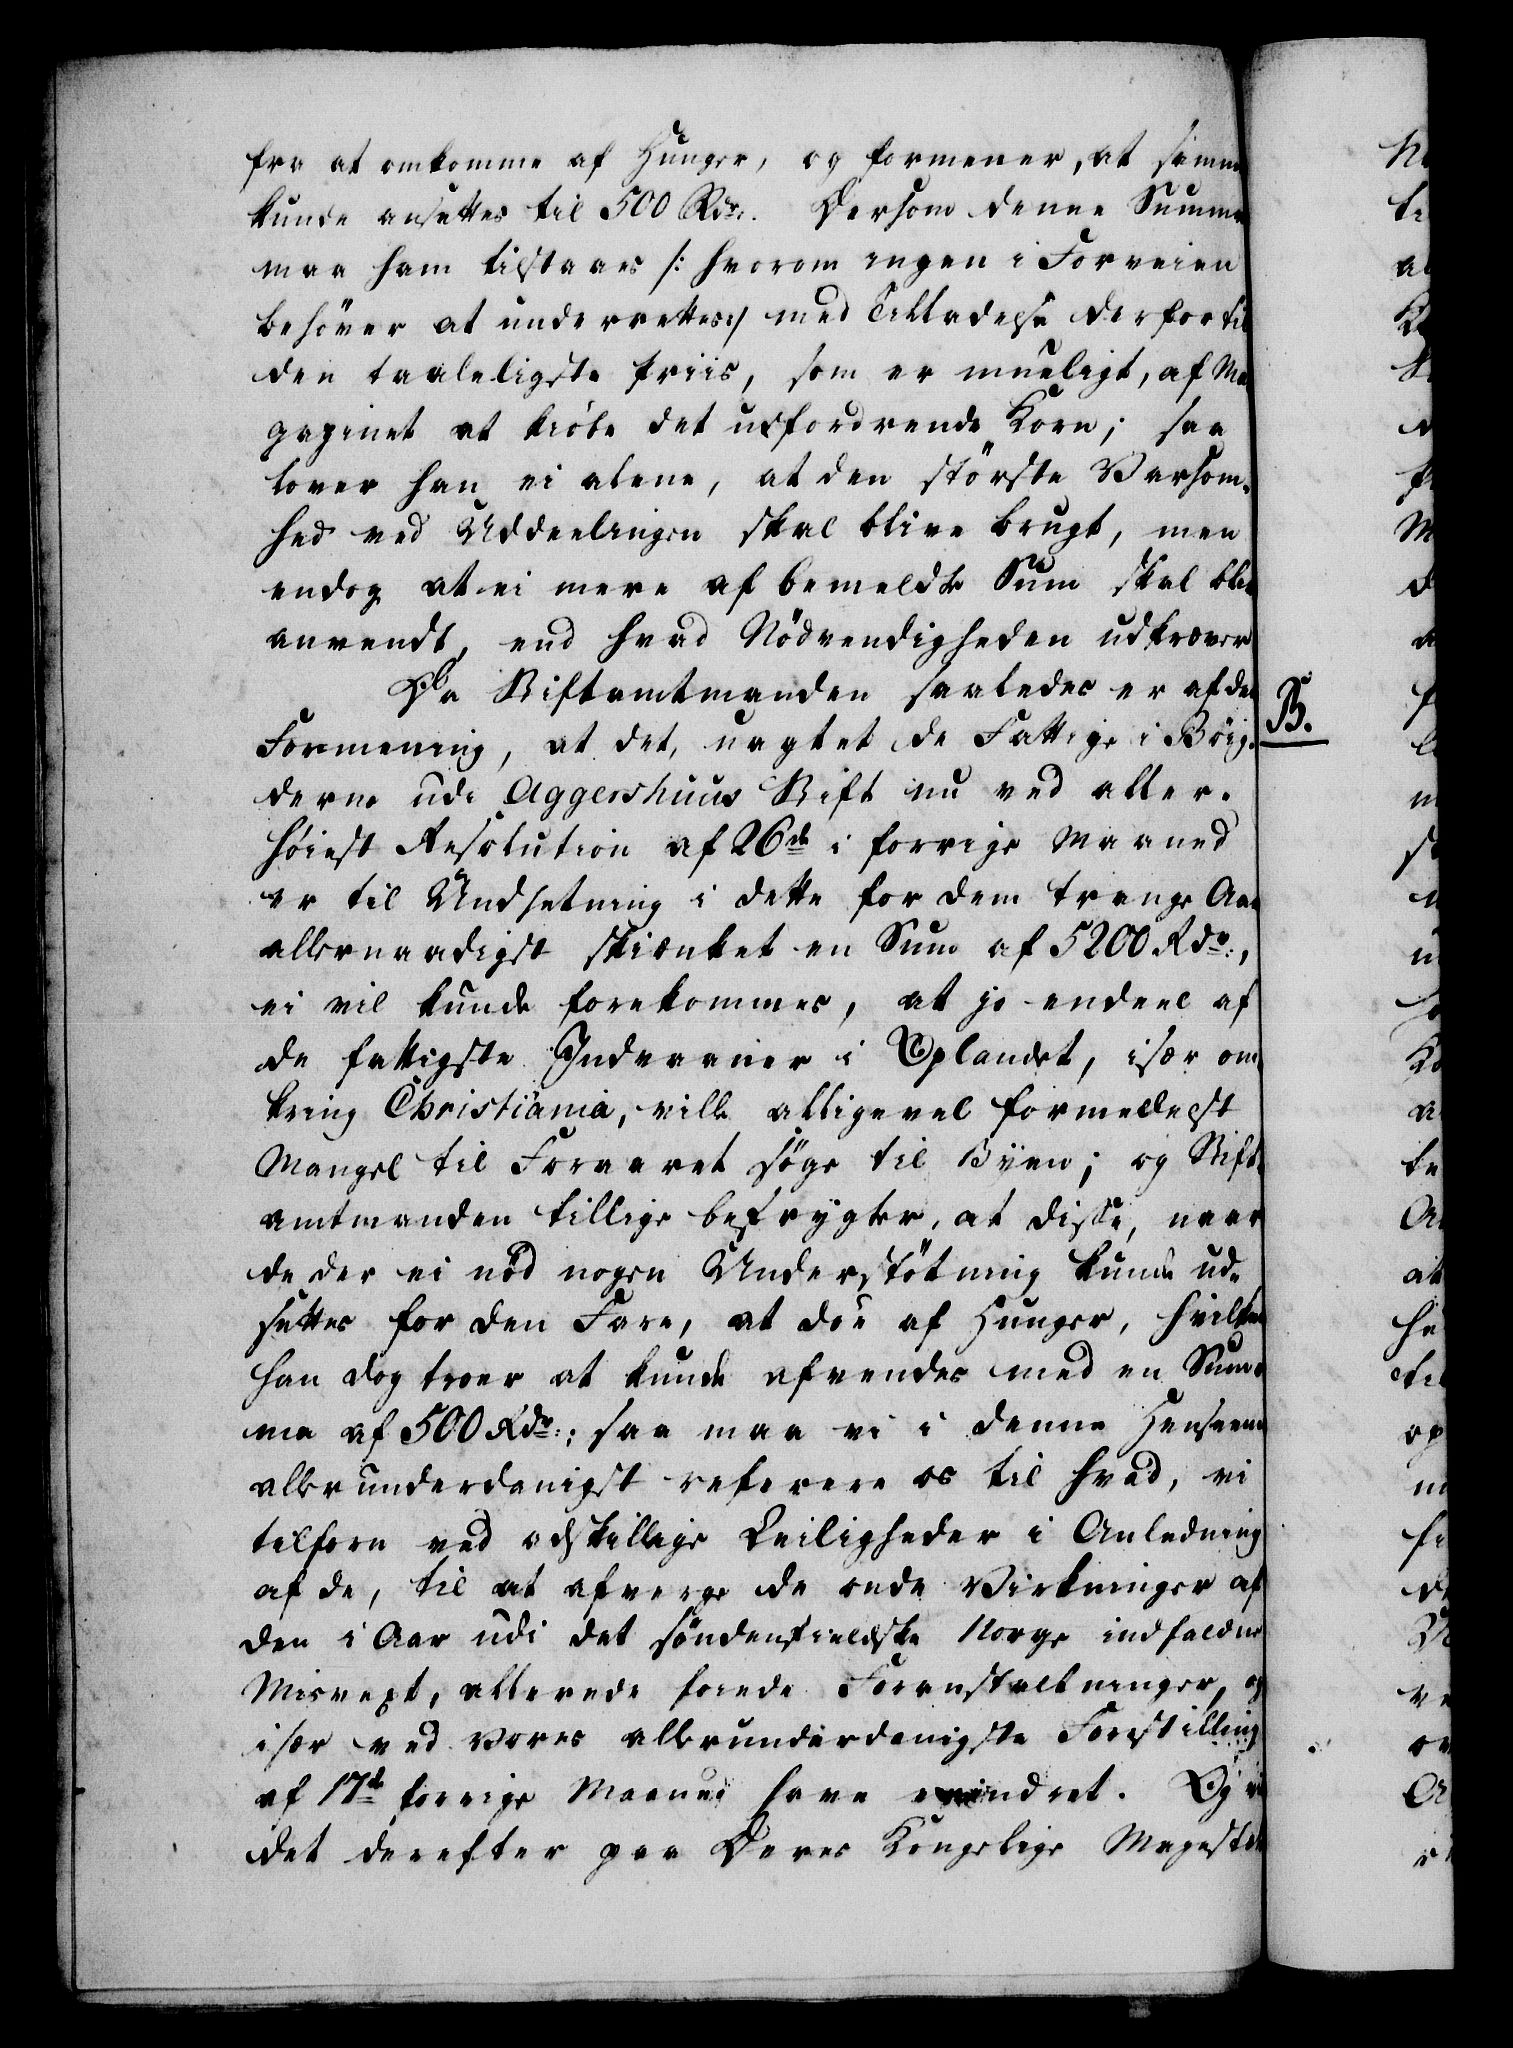 fra at omkomme af Hunger, og formener, at samme
kunde ansættes til 500 Rdr. Dersom denne Summa
maa ham tilstaaes /: hvorom ingen i Forveien
behöver at underrettes :/ med Tilladelse derfor til
den taaleligste Priis, som er mueligt, af Ma
gazinet at kiöbe det udfordrende Korn; saa
lover han ei alene, at den störste Varsom-
hed ved Uddeelingen skal blive brugt, men
endog at ei mere af bemeldte Sum skal blive
anvendt, end hvad Nödvendigheden udkræver
Da Stiftamtmanden saaledes er af den
Formening, at det, uagtet de Fattige i Böig-
derne udi Aggershuus Stift nu ved aller-
höiest Resolution af 26de i forrige Maaned
er til Undsetning i dette for dem trange Aar
allernaadigst skienket en Sum af 5200 Rdr.,
ei vil kunde forekommes, at jo endeel af
de fattigste Indvaaner i Oplandet, især om-
kring Christiania, ville alligevel formedelst
Mangel til Foraaret söge til Byen; og Stift-
amtmanden tillige befrygter, at disse, naar
de der ei nöd nogen Understötning kunde ud-
settes for den Fare, at döe af Hunger, hvilket
han dog troer at kunde afvendes med en Sum-
ma af 500 Rdr.; saa maa vi i denne Henseende
allerunderdanigst referere os til hvad, vi
tilforn ved adskillige Leiligheder i Anledning
af de, til at afverge de onde Virkninger af
den i Aar udi det söndenfieldske Norge indfaldne
Misvext, allerede föiede Foranstaltninger, og
især ved vores allerunderdanigste Forestilling
af 17de forrige Maaned have erindret. Og vi
det derefter paa Deres Kongelige Majestæts
B.